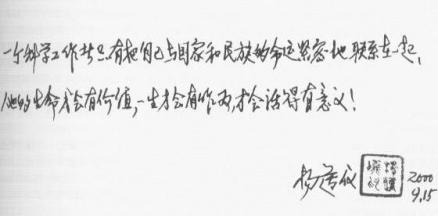 一个科学工作者只有把自己与国家和民族的命运紧密地联系在一起,
他的生命才会有价值,一生才会有作为,才会活得有意义!
杨
2000
9.15